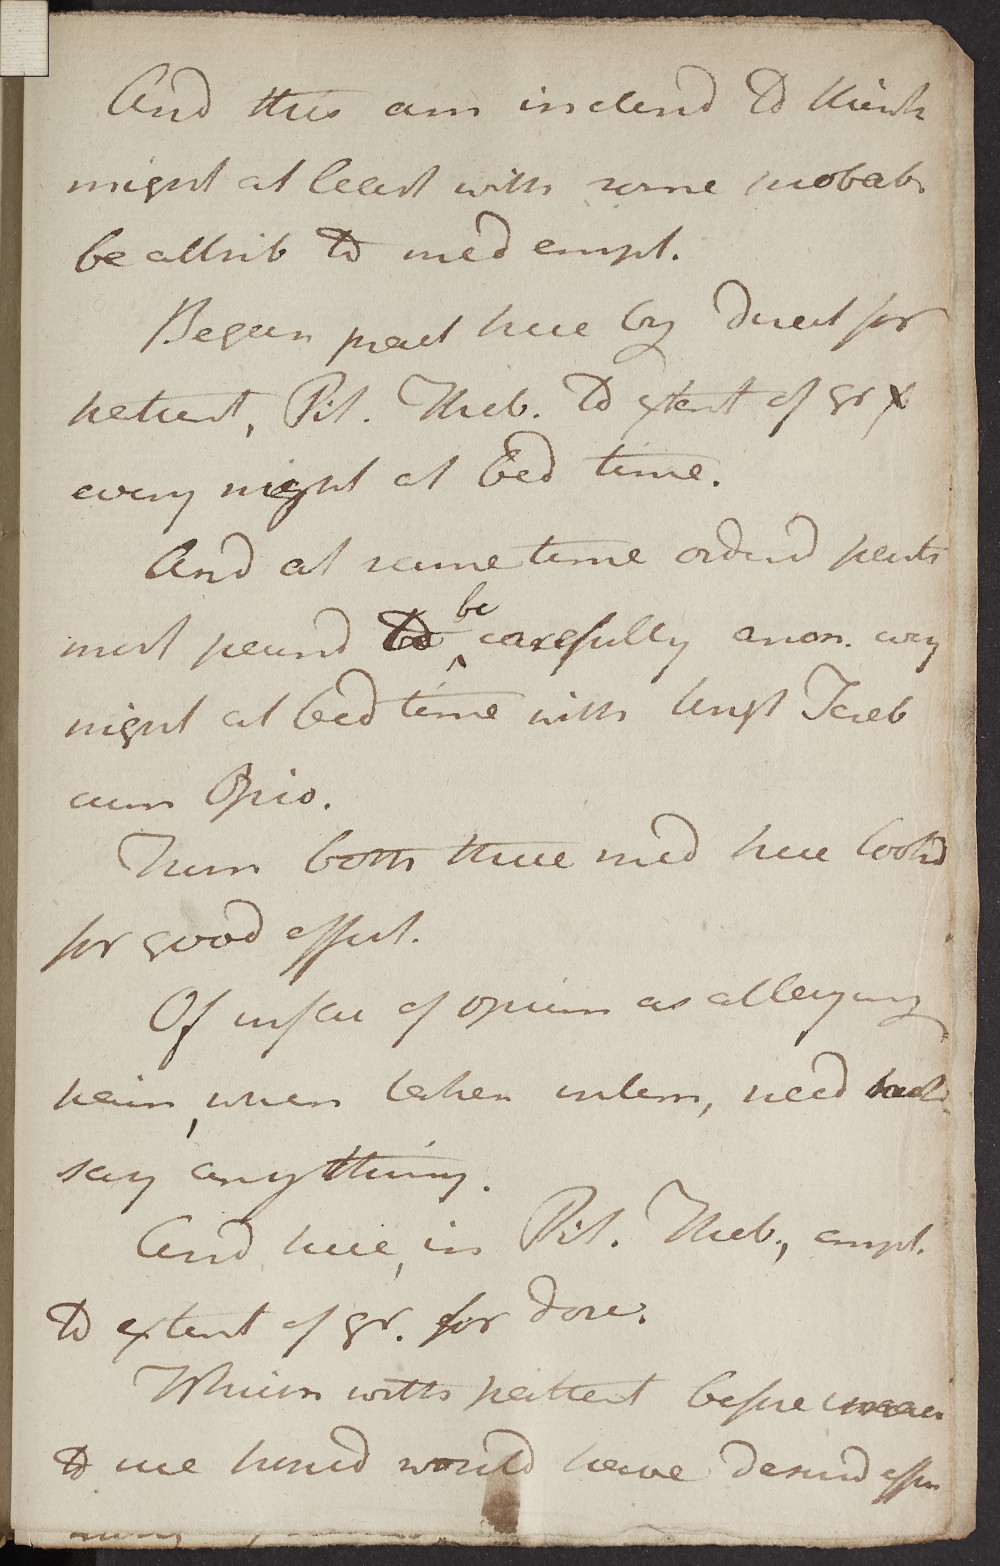 And this am inclend to think
might at least with some probab.
be attrib to med empl.
Began pract here by direct for
patient, Pil. Theb. to extent of gr x
every night at bed time.
And at same time ordend parts
most paind to be carefully anon. every
night at bed time with Ungt Saeb
cum Opio.
From both these med here lookd
for good effect.
Of influ of opium as allaying
pain, when taken intern, need hard
say anything.
And here, in Pil. Theb., empl.
to extent of gr. for dose.
Which with patient before
to me hoped would have desird effect